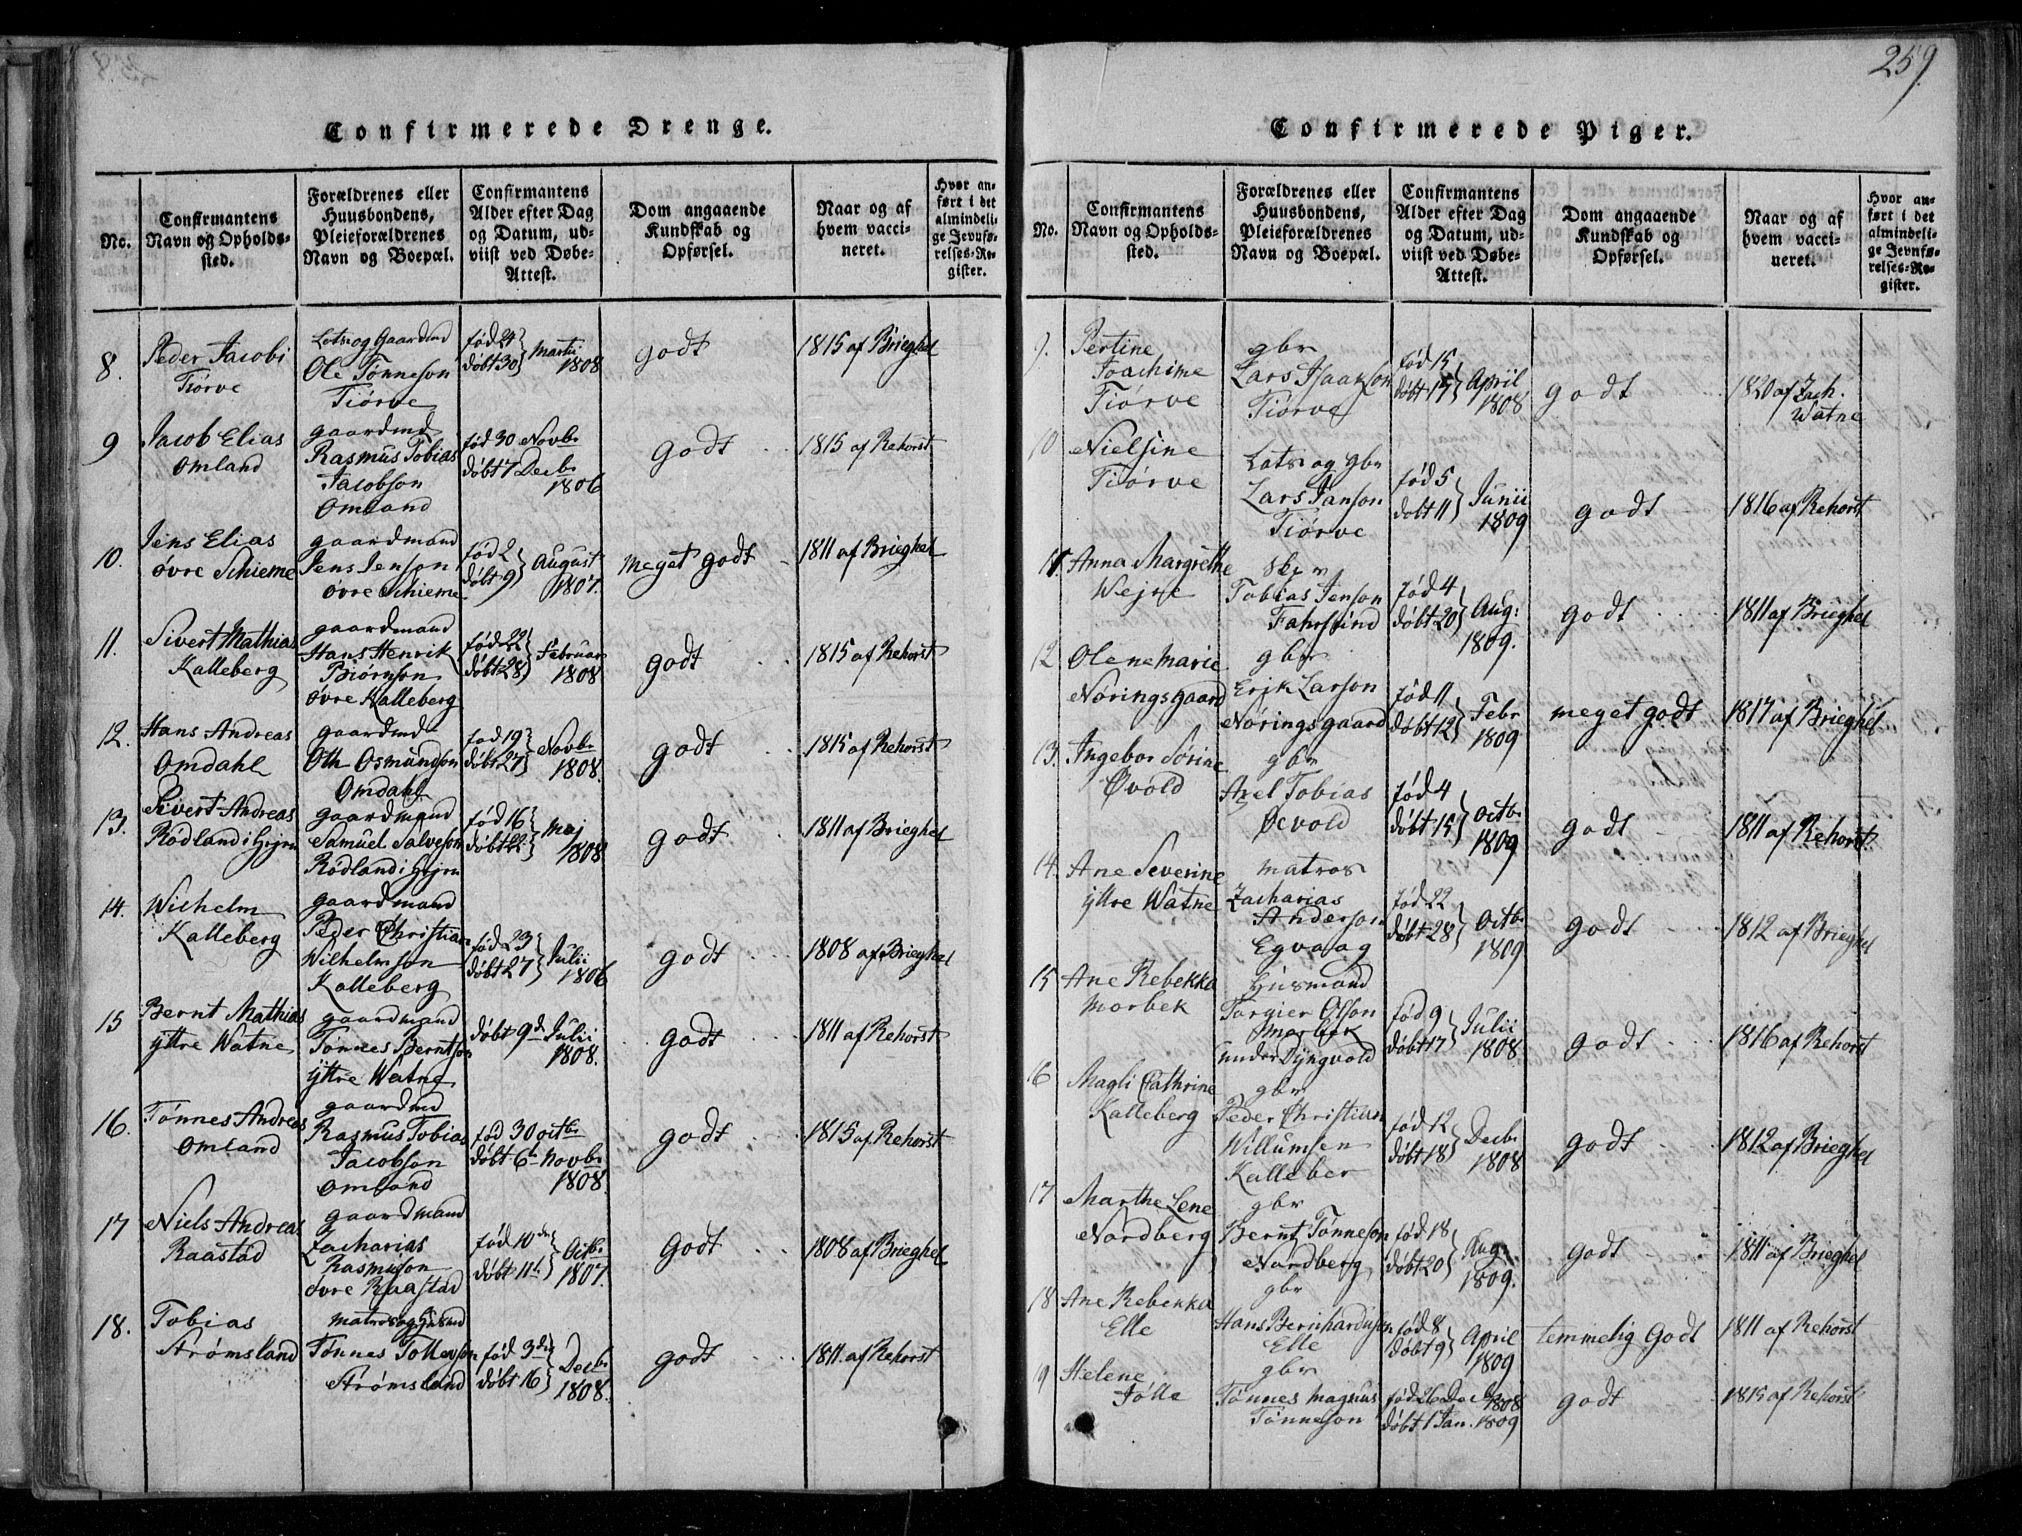 259.
Confirmerede Drenge.
No.
Confirmantens Navn og Opholds-sted.
Forældrenes eller Huusbondens, Pleieforældrenes Navn og Boepæl.
Confirmantens Alder efter Dag og Datum, ud-viist ved Døbe-Attest.
Dom angaaende Kundskab og Opførsel.
Naar og af hvem vacci-neret.
Hvor an-ført i det almindeli-ge Jevnfø-relses-Re-gister.
8. Peder Jacobi Tiörve
Lots og Gaardmd Ole Tönneson Tiörve
fód 24 döbt 30 Martii 1808
godt
1815 af Brieghel
9 Jacob Elias Omland
gaardmd Rasmus Tobias Jacobson Omland
fód 30 Novbr döbt 7 Decbr 1806
godt
1815 af Rehorst
10. Jens Elias óvre Schieme
gaardmand Jens Jenson óvre Schieme
fód 2 döbt 9 August 1807.
meget godt
1811 af Brieghel
11. Sivert Mathias Kalleberg
gaardmand Hans Henrik Biörnson óvre Kalleberg
fód 22 döbt 28 Februar 1808
godt
1815 af Rehorst
12. Hans Andreas Omdahl
gaardmd Oth Osmundson Omdahl
fód 19 döbt 27 Novbr 1808.
godt
1815 af Rehorst
13. Sivert Andreas Rödland i
gaardmand Samuel Salveson Rödland i
fód 16 döbt 22 Maj 1808.
godt
1811 af Brieghel
14. Wilhelm Kalleberg
gaardmand Peder Christian Wilhelmson Kalleberg
fód 23 döbt 27 Julii 1806
godt
1808 af Brieghel
15 Bernt Mathias ÿttre Watne
gaardmand Tönnes Berntson ÿttre Watne
döbt 9d Julii 1808.
godt
1811 af Rehorst
16. Tönnes Andreas Omland
gaardmd Rasmus Tobias Jacobson Omland
fód 30 octbr döbt 6t Novbr 1808.
godt
1815 af Rehorst
17 Niels Andreas Raastad
gaardmand Zacharias Rasmuson óvre Raastad
fód 10de döbt 11t Octbr 1807.
godt
1808 af Brieghel
18. Tobias Strömsland
matros og Tönnes Tollevson Strömsland
fód 3de döbt 16 Decbr 1808.
godt
1811. af Rehorst
Confirmerede Piger.
No.
Confirmantens Navn og Opholds-sted.
Forældrenes eller Huusbondens, Pleieforældrenes Navn og Boepæl.
Confirmantens Alder efter Dag og Datum, ud-viist ved Døbe-Attest.
Dom angaaende Kundskab og Opførsel.
Naar og af hvem vacci-neret.
Hvor an-ført i det almindeli-ge Jevnfø-relses-Re-gister.
9. Pertine Joachime Tiörve
gbr Lars Isaakson Tiörve
fód 15 döbt 17 April 1808
godt
1820 af Zach. Watne
10 Nielsine Tiörve
Lots og gbr Lars Janson Tiörve
fód 5 döbt 11 Junii 1809
godt
1816 af Rehorst
11. Anna Margrethe Wejre
Tobias Jenson Fahrsund
fód 4 döbt 20 Aug: 1809.
godt
1811 af Brieghel
12 Olene Marie Nöringsgaard
gbr Erik Larson Nöringsgaard
fód 11 döbt 12 Febr 1809
meget godt
1817 af Brieghel
13. Ingebor Sörine Övold
gbr Axel Tobias Öevold
fód 4 döbt 15 Octbr 1809
godt
1811 af Rehorst
14. Ane Severine ÿttre Watne
matros Zacharias Anderson Egvaag
fód 22 döbt 28 Octbr 1809
godt
1812 af Brieghel
15 Ane Rebekka Morbek
Husmand Torgier Olson Morbek under Dÿngvold
fód 9 döbt 17 Julii 1808
godt
1816 af Rehorst
16 Magli Cathrine Kalleberg
gbr Peder Christian Willumsen Kalleber
fód 12 döbt 18 Decbr 1808
godt
1812 af Brieghel
17 Marthe Lene Nordberg
gbr Bernt Tönneson Nordberg
fód 18 döbt 20 Aug: 1809.
godt
1811 af Brieghel
18 Ane Rebekka Elle
gbr Hans Bernhardusen Elle
fód 8 döbt 9 April 1809
temmelig Godt
1811 af Rehorst
19 Helene Jölle
gbr Tönnes Magnus Tönneson
fód 26 Decbr 1808 döbt 1 Jan. 1809
godt
1815 af Rehorst